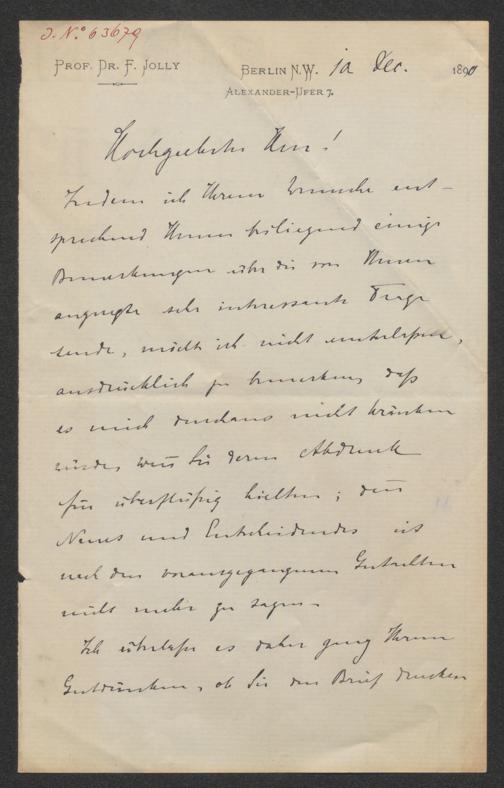 J. N.º 63679
PROF. DR. F. JOLLY
BERLIN N.W. 12 Dec. 1890
ALEXANDER-UFER 7.
Hochgeehrter Herr!
Indem ich Ihrem Wunsche ent-
sprechend Ihnen beiliegend einige
Bemerkungen über die von Ihnen
angeregte sehr interessante Frage
sende, möchte ich nicht unterlassen,
ausdrücklich zu bemerken, daß
es mich durchaus nicht kränken
würde, wenn Sie deren Abdruck
für überflüßig hielten; denn
Neues und Entscheidendes ist
nach den vorausgegangenen Gutachten
nicht mehr zu sagen.
Ich überlasse es daher ganz Ihrem
Gutdünken, ob Sie den Brief drucken